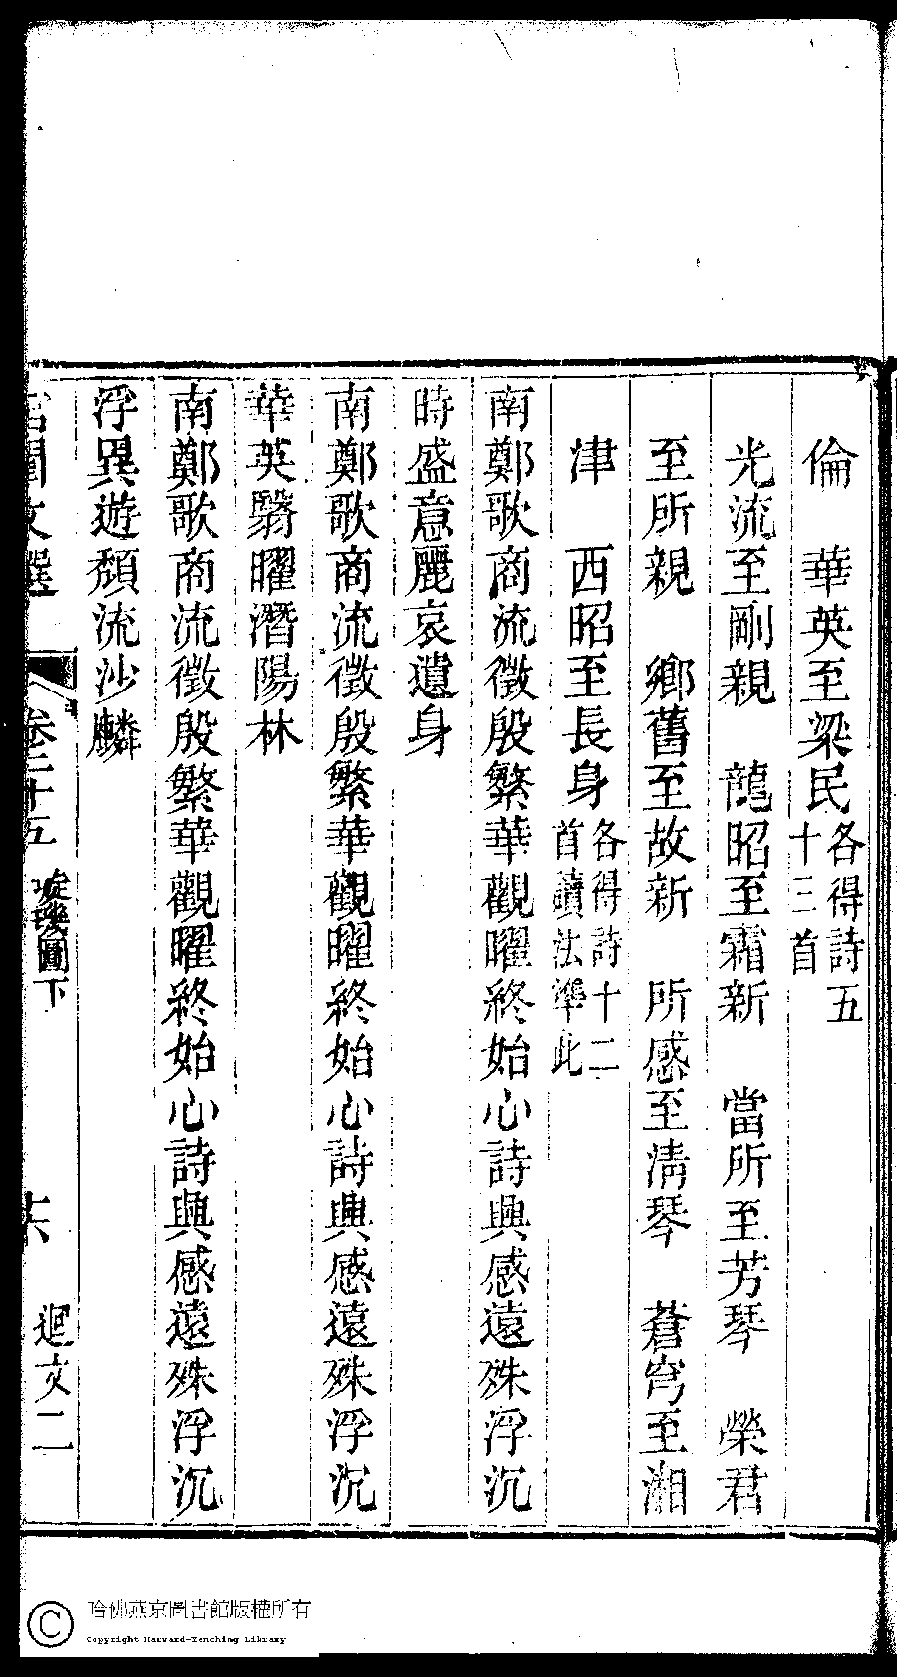 倫　華英至梁民各得詩五十三首
光流至剛親　龍昭至霜新　當所至芳琴　榮君
至所親　鄉舊至故新　所感至清琴　蒼穹至湘
津　西昭至長身各得詩十二首讀法準此
南鄭歌商流徵殷繁華觀曜終始心詩興感遠殊浮沉
時盛意麗哀遺身
南鄭歌商流徵殷繁華觀曜終始心詩興感遠殊浮沉
華英翳曜潛陽林
南鄭歌商流徵殷繁華觀曜終始心詩興感遠殊浮沉
浮異遊頹流沙麟
宮閨文選　卷二十五　璇璣圖下　十六　迴文二
哈佛燕京圖書館版權所有
Copyright Harvard-Yenching Library